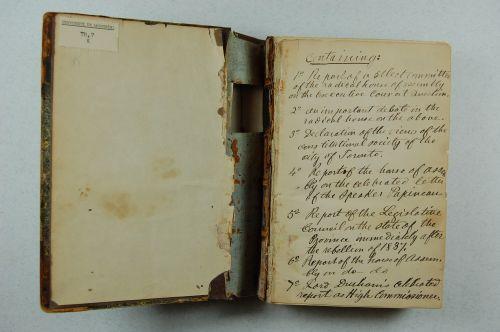 70,7
Containing:
1o Report of a select committee
of the radical house of assembly
on the Executive Council question.
2o an important debate in the
radical house on the above.
3o Declaration of the views of the
constitutional society of the
city of Toronto.
4o Report of the house of assem
bly on the celebrated letter
of the Speaker Papineau
5o Report of the Legislative
Council on the state of the
Province immediately after
the rebellion of 1837.
6o Report of the house of Assem
bly on do do
7o Lord Durham's celebrated
report as High Commissioner